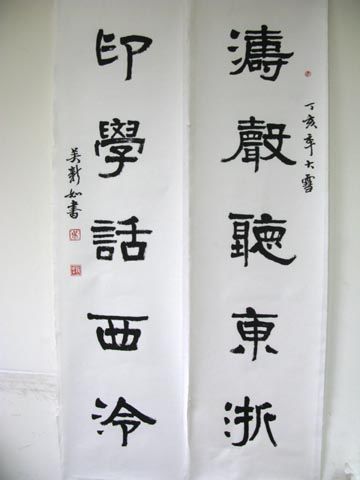 丁亥年大雪
濤聲聽東浙
印學話西泠
吳新如書